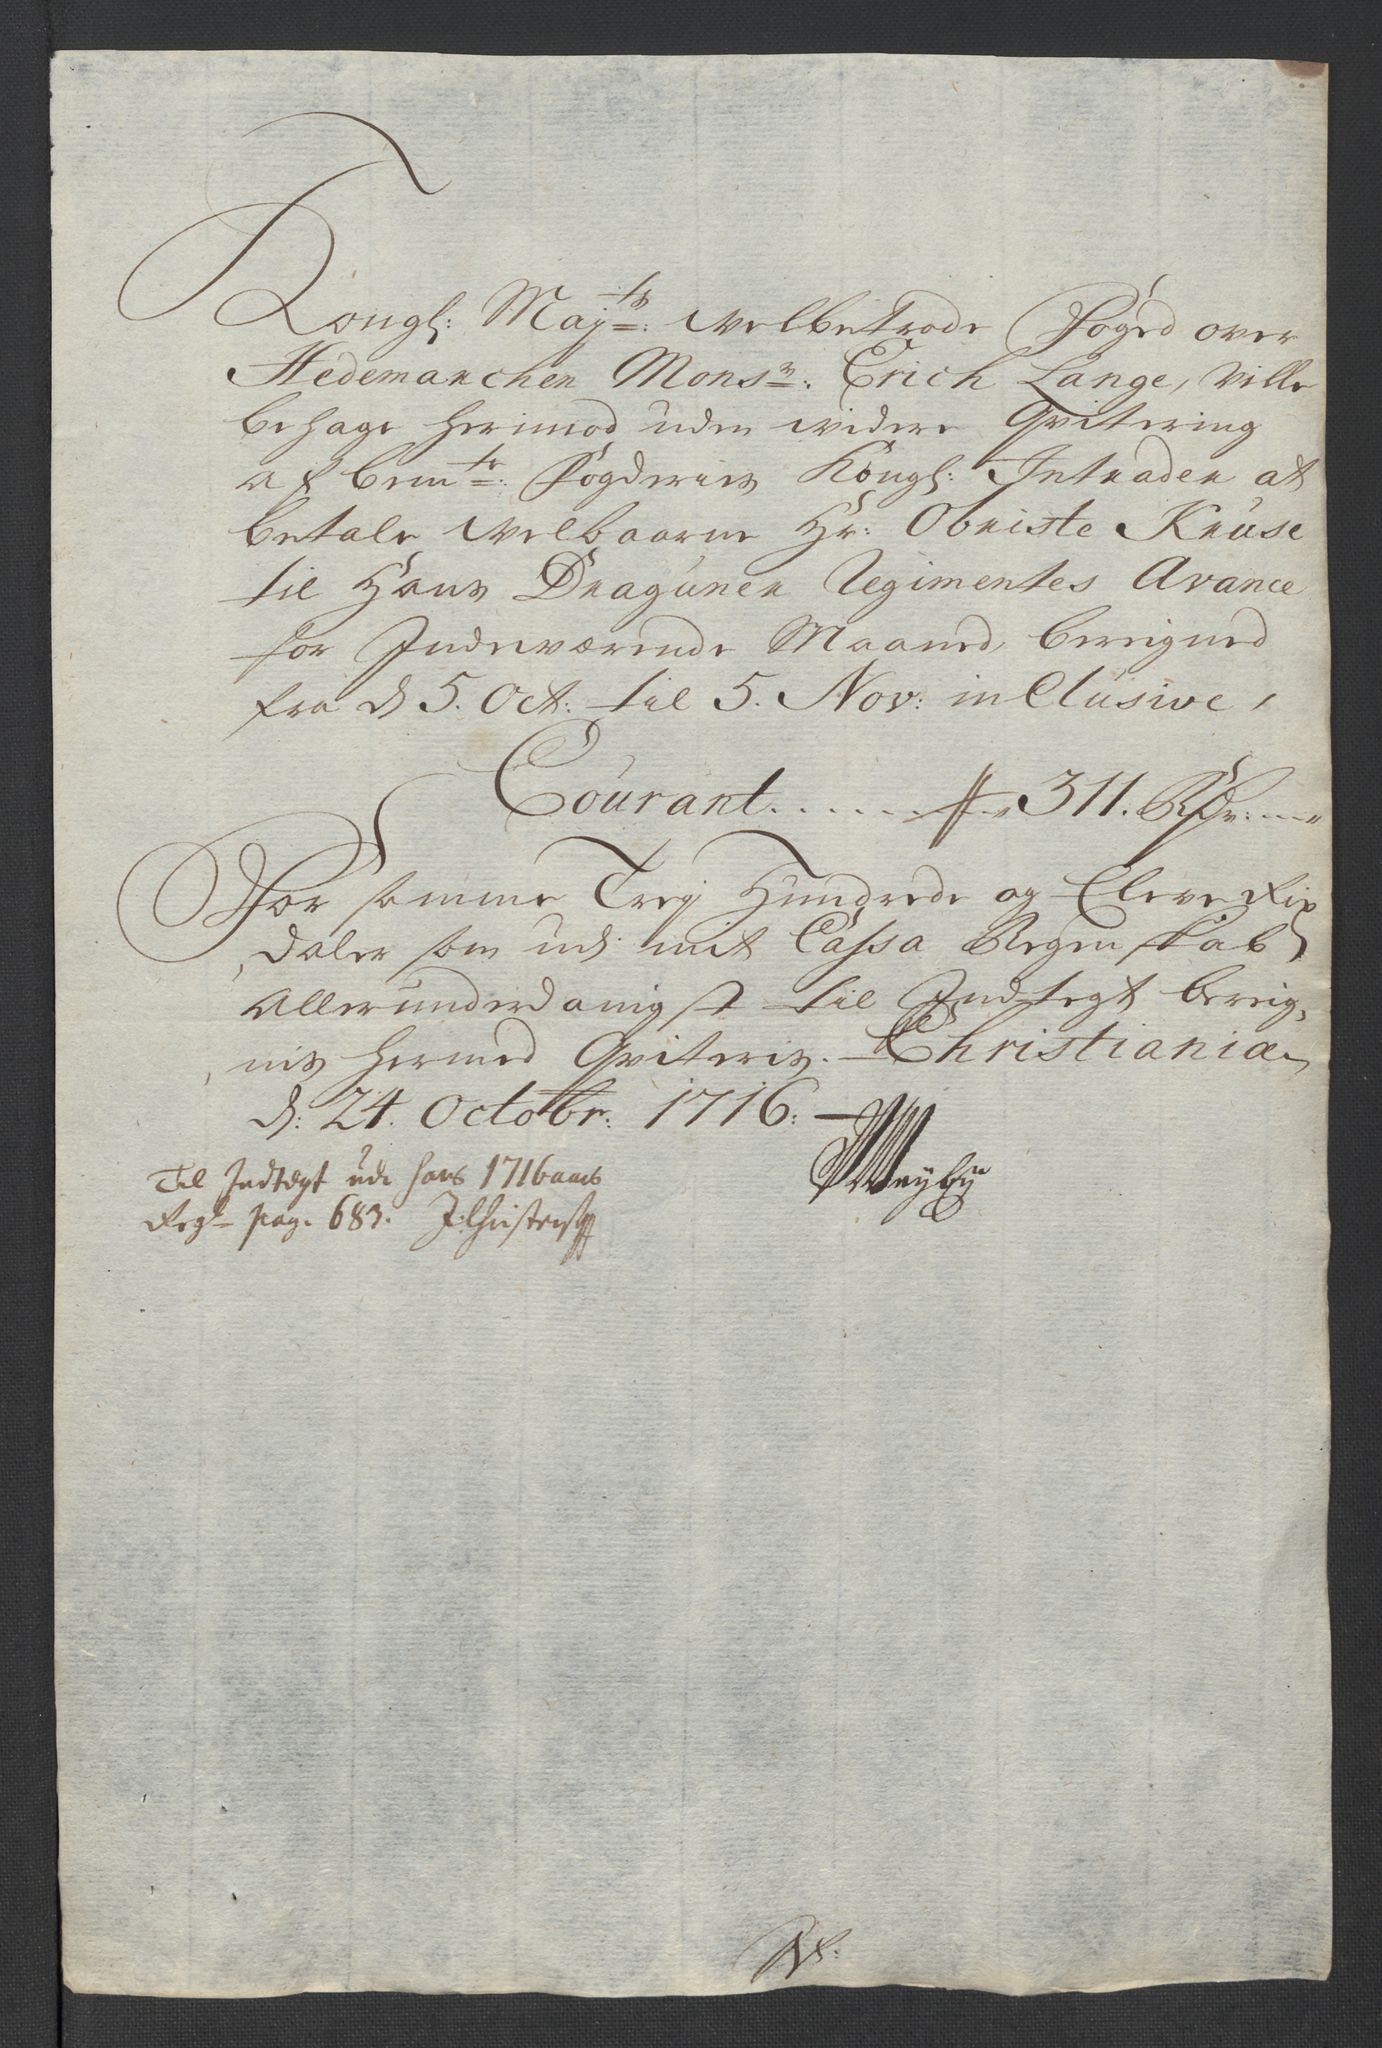 Kongl: Maj:ts velbetrode Foged over
Hedemarchen Mons:r Erich Lange, ville
behage herimod uden widere Qvitering
af bem:te Fogderies Kongl: Intrader at
betale Welbaarne Hr: Obriste Kruse
til Hans Draguner Regimentes Avance
for Indeværende Maaned, bereigned
fra d 5. Oct. til 5. Nov: inclusive,
Courant . . . . . 311. Rdr:
For samme Trej Hundrede og Eleve Rix
daler som udi mit Cassa Regenskab
Allerunderdanigst til Indtegt bereig,
nis hermed Qviteris. Christiania
d: 24. Octobr: 1716:
Til Indtegt udi hans 1716 aars
Regn pag. 683. J: Christensen